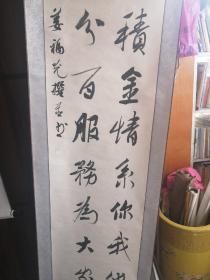 積金情系你我他
分百服務為大家
姜福先撰并书